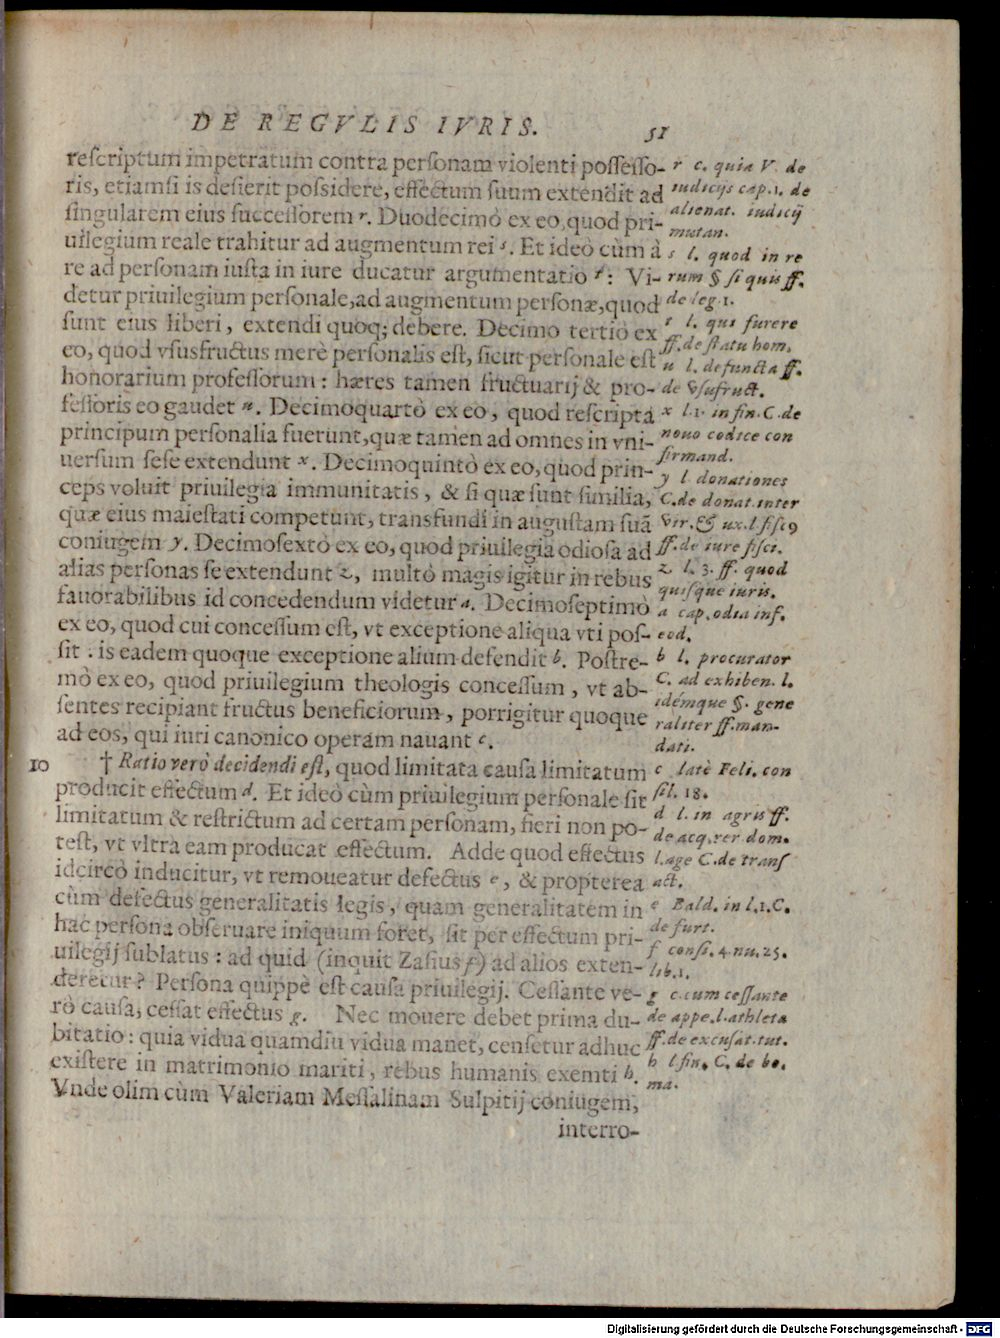 DE REGVLIS IVRIS. 51
reſcriptum impetratum contra perſonam violenti poſſeſſo-
ris, etiamſi is deſierit poſsidere, effectum ſuum extendit ad
ſingularem eius ſucceſſorem r. Duodecimò ex eo, quod pri-
uilegium reale trahitur ad augmentum rei s. Et ideò cùm à
re ad perſonam iuſta in iure ducatur argumentatio t: Vi-
detur priuilegium perſonale, ad augmentum perſonæ, quod
ſunt eius liberi, extendi quoq; debere. Decimo tertiò ex
eo, quod vſusfructus merè perſonalis eſt, ſicut perſonale eſt
honorarium profeſſorum: hæres tamen fructuarij & pro-
feſſoris eo gaudet u. Decimoquartò ex eo, quod reſcripta
principum perſonalia fuerunt, quæ tamen ad omnes in vni-
uerſum ſeſe extendunt x. Decimoquintò ex eo, quod prin-
ceps voluit priuilegia immunitatis, & ſi quæ ſunt ſimilia,
quæ eius maieſtati competunt, transfundi in auguſtam ſuã
coniugem y. Decimoſextò ex eo, quod priuilegia odioſa ad
alias perſonas ſe extendunt z, multò magis igitur in rebus
fauorabilibus id concedendum videtur a. Decimoſeptimò
ex eo, quod cui conceſſum eſt, vt exceptione aliqua vti poſ-
ſit. is eadem quoque exceptione alium defendit b. Poſtre-
mò ex eo, quod priuilegium theologis conceſſum, vt ab-
ſentes recipiant fructus beneficiorum, porrigitur quoque
ad eos, qui iuri canonico operam nauant c.
10 † Ratio verò decidendi eſt, quod limitata cauſa limitatum
producit effectum d. Et ideò cùm priuilegium perſonale ſit
limitatum & reſtrictum ad certam perſonam, fieri non po-
teſt, vt vltra eam producat effectum. Adde quod effectus
idcircò inducitur, vt remoueatur defectus e, & propterea
cùm defectus generalitatis legis, quam generalitatem in
hac perſona obſeruare iniquum foret, ſit per effectum pri-
uilegij ſublatus: ad quid (inquit Zaſius f) ad alios exten-
deretur? Perſona quippè eſt cauſa priuilegij. Ceſſante ve-
rò cauſa, ceſſat effectus g. Nec mouere debet prima du-
bitatio: quia vidua quamdiu vidua manet, cenſetur adhuc
exiſtere in matrimonio mariti, rebus humanis exemti h.
Vnde olim cùm Valeriam Meſſalinam Sulpitij coniugem,
interro-
r c. quia V. de
iudicijs cap. 1. de
alienat. iudicij
mutan.
s l. quod in re
rum § ſi quis ff.
de leg. 1.
t l. qui furere
ff. de ſtatu hom.
u l. defuncta ff.
de vſufruct.
x l. 1. in fin. C. de
nouo codice con
firmand.
y l donationes
C. de donat. inter
vir. & ux. l. fiſc9
ff. de iure fiſci.
z l. 3. ff. quod
quiſque iuris.
a cap. odia inf.
eod.
b l. procurator
C. ad exhiben. l.
idémque §. gene
raliter ff. man-
dati.
c latè Feli. con
ſil. 18.
d l. in agris ff.
de acq. rer dom.
l. age C. de tranſ
act.
e Bald. in l. 1. C.
de furt.
f conſi. 4. nu. 25.
lib. 1.
g c. cum ceſſante
de appe. l. athleta
ff. de excuſat. tut.
h l fin. C. de bo.
ma.
Digitalisierung gefördert durch die Deutsche Forschungsgemeinschaft - DFG